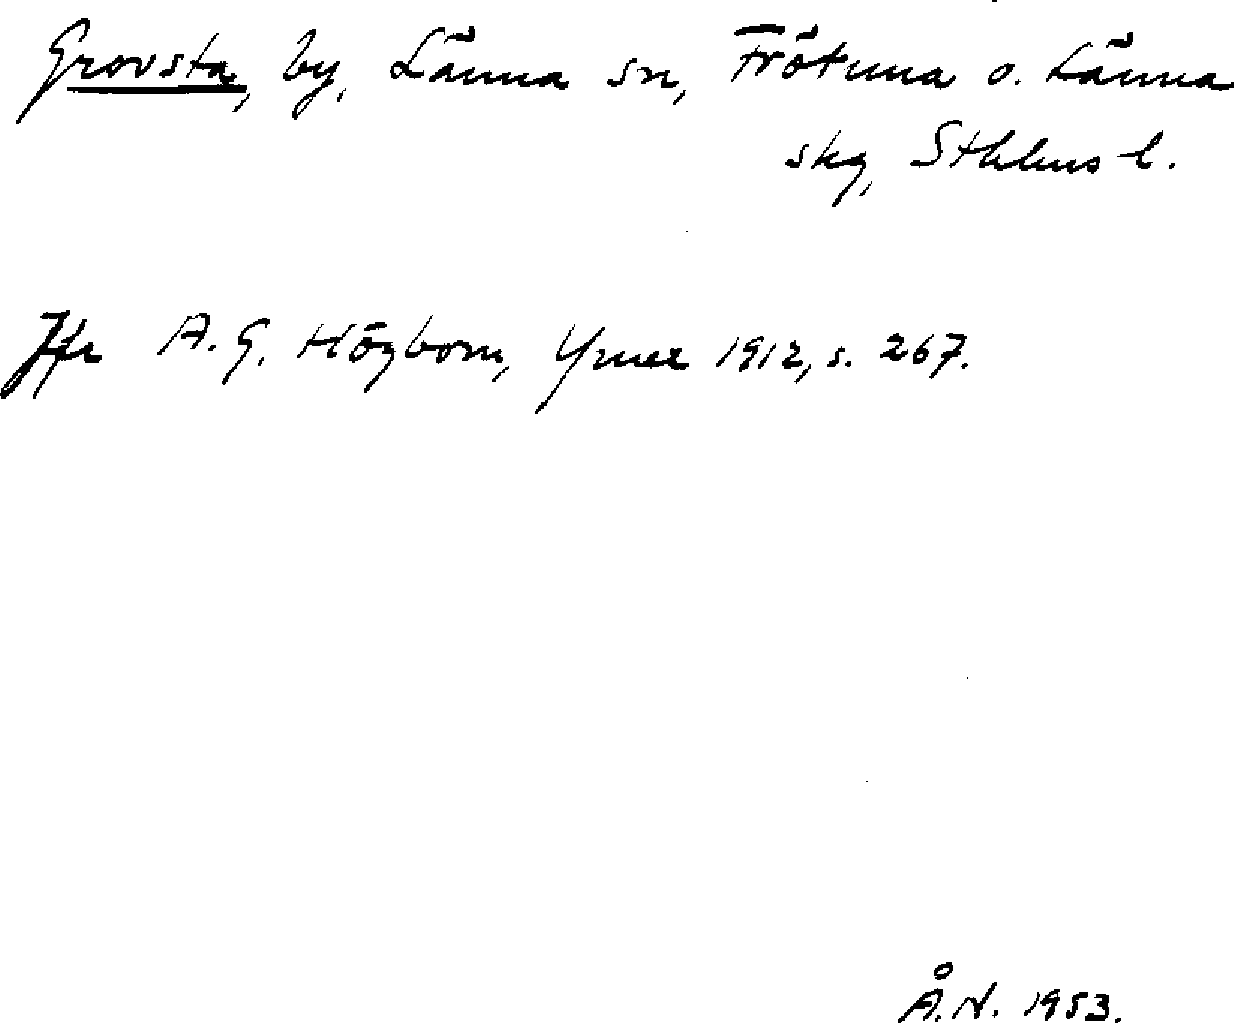 Grovsta, by, Länna sn, Frötuna o. Länna
skg, Sthlms l.
Jfr A. G. Högbom, Ymer 1912, s. 267.
Å. N. 1953.